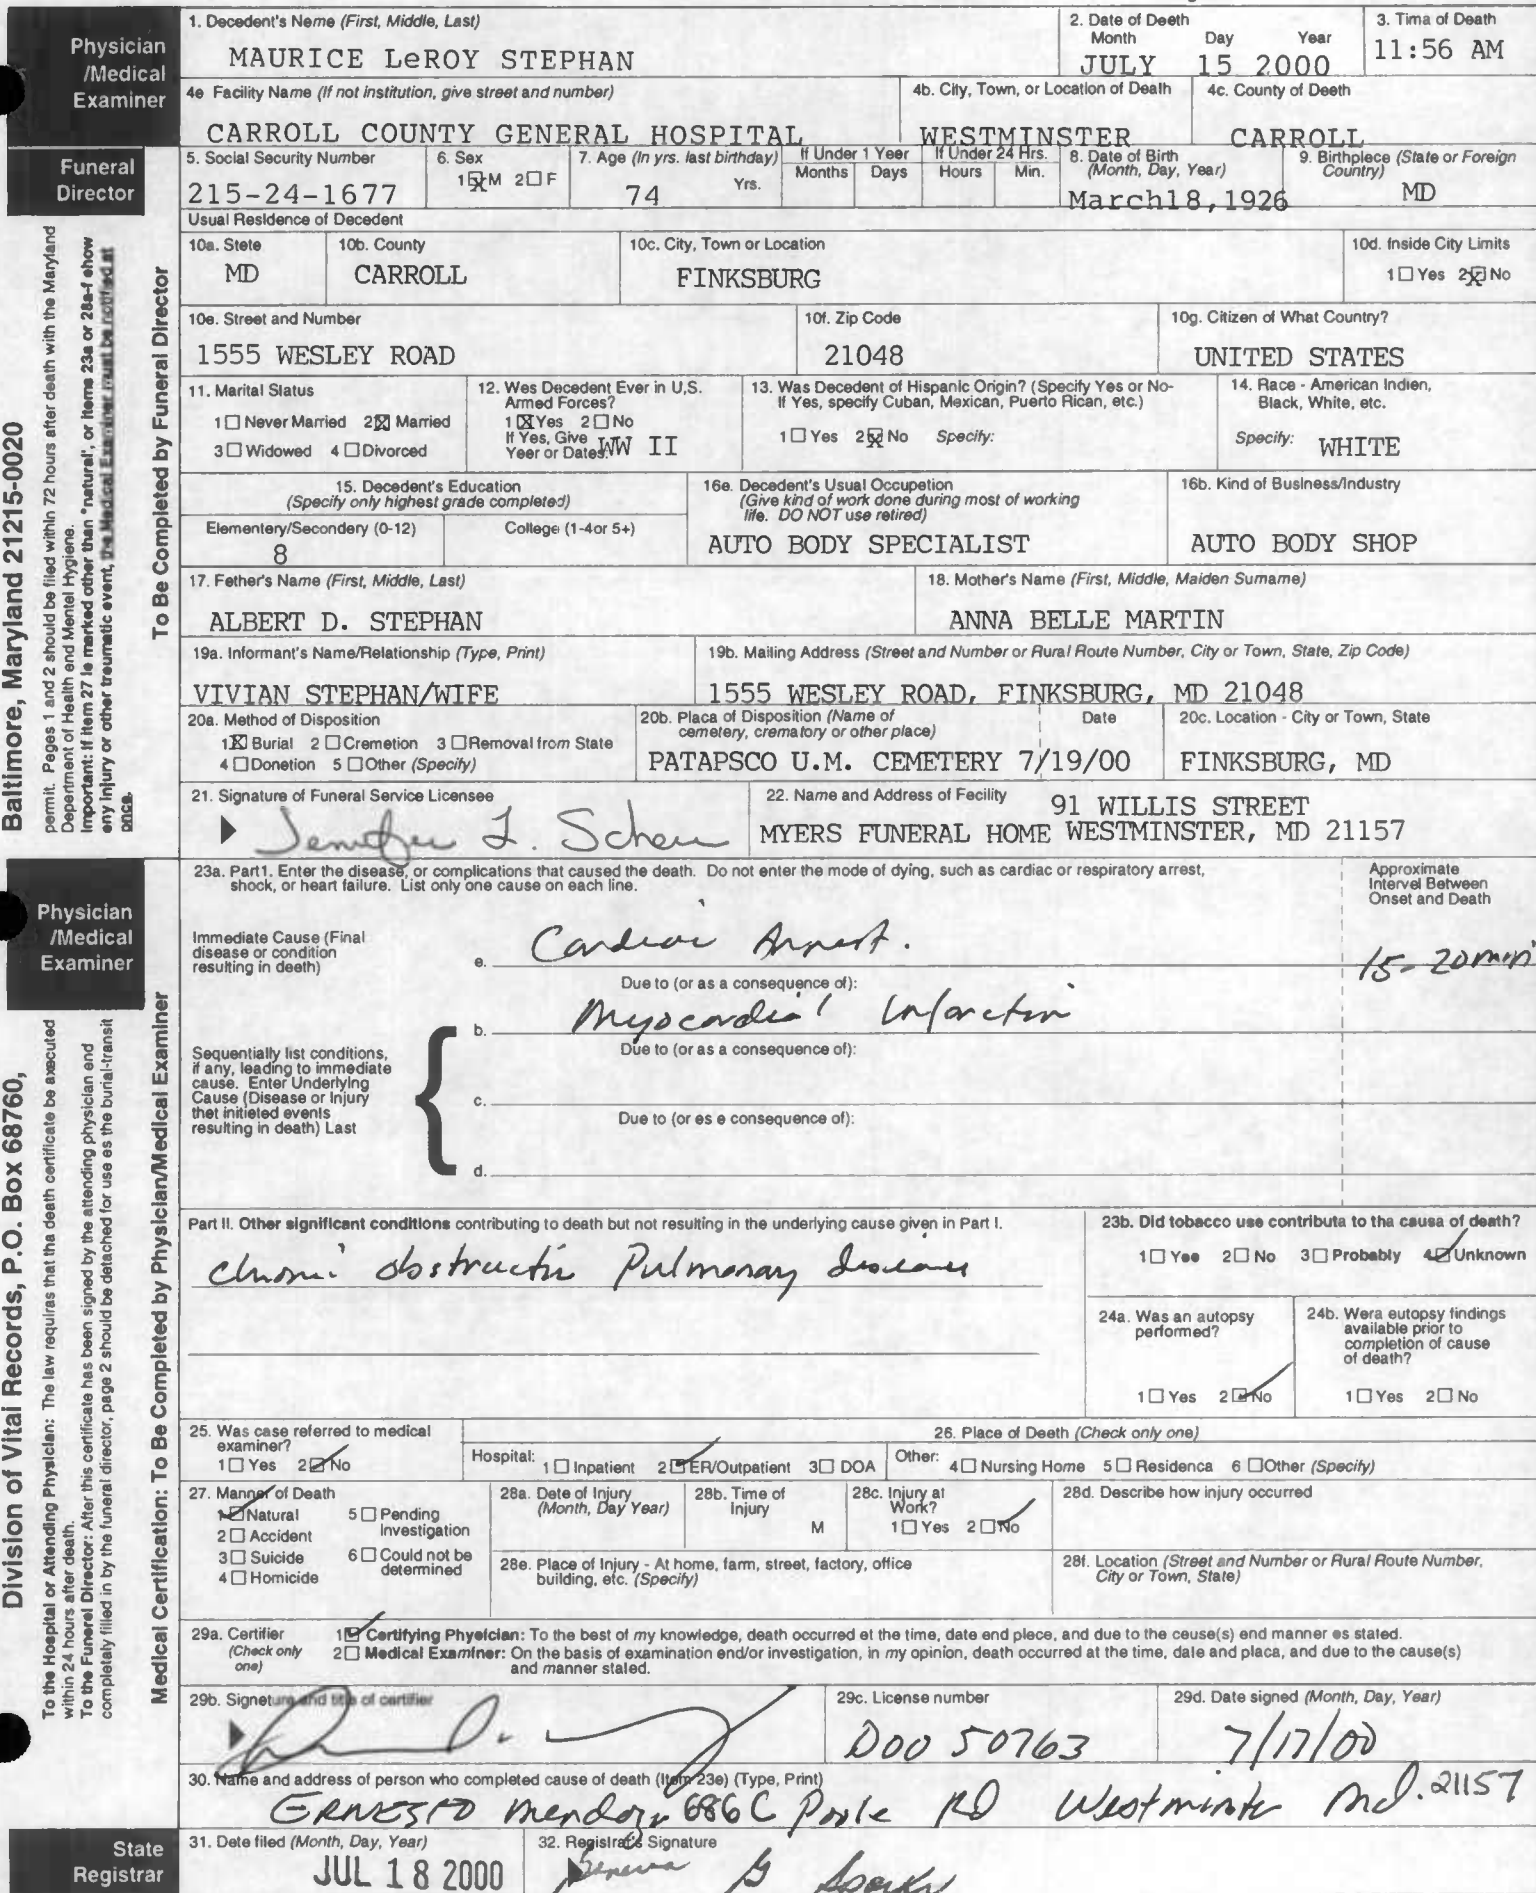 Physician
/Medical
Examiner
1. Decedent's Neme (First, Middle, Last)
MAURICE LeROY STEPHAN
2. Date of Deeth
Month Day Year
JULY 15 2000
3. Tima of Death
11:56 AM
4e Facility Name (If not institution, give street and number)
CARROLL COUNTY GENERAL HOSPITAL
4b. City, Town, or Location of Death
WESTMINSTER
4c. County of Deeth
CARROLL
Funeral
Director
5. Social Security Number
215-24-1677
6. Sex
1 ☒ M 2 ☐ F
7. Age (In yrs. last birthday)
74 Yrs.
If Under 1 Year
Months Days
If Under 24 Hrs.
Hours Min.
8. Date of Birth
(Month, Day, Year)
March18,1926
9. Birthplece (State or Foreign
Country)
MD
Usual Residence of Decedent
10a. Stete
MD
10b. County
CARROLL
10c. City, Town or Location
FINKSBURG
10d. Inside City Limits
1 ☐ Yes 2 ☒ No
10e. Street and Number
1555 WESLEY ROAD
10f. Zip Code
21048
10g. Citizen of What Country?
UNITED STATES
11. Marital Status
1 ☐ Never Married 2 ☒ Married
3 ☐ Widowed 4 ☐ Divorced
12. Wes Decedent Ever in U,S.
Armed Forces?
1 ☒ Yes 2 ☐ No
If Yes, Give
Yeer or Dates: WW II
13. Was Decedent of Hispanic Origin? (Specify Yes or No-
If Yes, specify Cuban, Mexican, Puerto Rican, etc.)
1 ☐ Yes 2 ☒ No Specify:
14. Race - American Indien,
Black, White, etc.
Specify: WHITE
15. Decedent's Education
(Specify only highest grade completed)
Elementery/Secondery (0-12) College (1-4or 5+)
8
16e. Decedent's Usual Occupetion
(Give kind of work done during most of working
life. DO NOT use retired)
AUTO BODY SPECIALIST
16b. Kind of Business/Industry
AUTO BODY SHOP
17. Fether's Name (First, Middle, Last)
ALBERT D. STEPHAN
18. Mother's Name (First, Middle, Maiden Surname)
ANNA BELLE MARTIN
19a. Informant's Name/Relationship (Type, Print)
VIVIAN STEPHAN/WIFE
19b. Mailing Address (Street and Number or Rural Route Number, City or Town, State, Zip Code)
1555 WESLEY ROAD, FINKSBURG, MD 21048
20a. Method of Disposition
1 ☒ Burial 2 ☐ Cremetion 3 ☐ Removal from State
4 ☐ Donetion 5 ☐ Other (Specify)
20b. Placa of Disposition (Name of
cemetery, crematory or other place)
Date
PATAPSCO U.M. CEMETERY 7/19/00
20c. Location - City or Town, State
FINKSBURG, MD
21. Signature of Funeral Service Licensee
Jennifer L.
22. Name and Address of Fecility
91 WILLIS STREET
MYERS FUNERAL HOME WESTMINSTER, MD 21157
To Be Completed by Funeral Director
Baltimore, Maryland 21215-0020
permit. Peges 1 and 2 should be filed within 72 hours after death with the Maryland
Depertment of Health and Mentel Hygiene.
Important: If item 27 is marked other than "natural", or items 23a or 28a-f show
any injury or other treumatic event, the Medical Examiner must be notified at
once.
Physician
/Medical
Examiner
23a. Part1. Enter the disease, or complications that caused the death. Do not enter the mode of dying, such as cardiac or respiratory arrest,
shock, or heart failure. List only one cause on each line.
Approximate
Intervel Between
Onset and Death
Immediate Cause (Final
disease or condition
resulting in death)
e. Cardiac Arrest.
15-20 min
Due to (or as a consequence of):
b. Myocardial Infarction
Due to (or as a consequence of):
Sequentially list conditions,
if any, leading to immediate
cause. Enter Underlying
Cause (Disease or Injury
thet initieted events
resulting in death) Last
c.
Due to (or es e consequence of):
d.
Part II. Other significant conditions contributing to death but not resulting in the underlying cause given in Part I.
Chronic obstructive Pulmonary disease
23b. Did tobacco use contributa to tha causa of death?
1 ☐ Yes 2 ☐ No 3 ☐ Probably 4 ☑ Unknown
24a. Was an autopsy
performed?
1 ☐ Yes 2 ☑ No
24b. Wera eutopsy findings
available prior to
completion of cause
of death?
1 ☐ Yes 2 ☐ No
25. Was case referred to medical
examiner?
1 ☐ Yes 2 ☑ No
26. Place of Deeth (Check only one)
Hospital: 1 ☐ Inpatient 2 ☑ ER/Outpatient 3 ☐ DOA
Other: 4 ☐ Nursing Home 5 ☐ Residenca 6 ☐ Other (Specify)
27. Manner of Death
1 ☑ Natural 5 ☐ Pending
Investigation
2 ☐ Accident
3 ☐ Suicide 6 ☐ Could not be
determined
4 ☐ Homicide
28a. Date of Injury
(Month, Day Year)
28b. Time of
Injury
M
28c. Injury at
Work?
1 ☐ Yes 2 ☑ No
28d. Describe how injury occurred
28e. Place of Injury - At home, farm, street, factory, office
building, etc. (Specify)
28f. Location (Street and Number or Rural Route Number,
City or Town, State)
29a. Certifier
(Check only
one)
1 ☑ Certifying Physician: To the best of my knowledge, death occurred et the time, date end plece, and due to the ceuse(s) end manner es stated.
2 ☐ Medical Examiner: On the basis of examination end/or investigation, in my opinion, death occurred at the time, date and placa, and due to the cause(s)
and manner stated.
29b. Signeture and title of certifier
29c. License number
D00 50763
29d. Date signed (Month, Day, Year)
7/17/00
30. Name and address of person who completed cause of death (Item 23e) (Type, Print)
ERNESTO Mendoza 686 C Poole RD Westminster Md. 21157
Medical Certification: To Be Completed by Physician/Medical Examiner
Division of Vital Records, P.O. Box 68760,
To the Hospital or Attending Physician: The law requiras that tha death certificate be executed
within 24 hours after death.
To the Funerel Director: After this certificate has been signed by the attending physician end
completaly filled in by the funeral director, page 2 should be detached for use es the burial-transit
State
Registrar
31. Dete filed (Month, Day, Year)
JUL 18 2000
32. Registrar's Signature
Geneva G